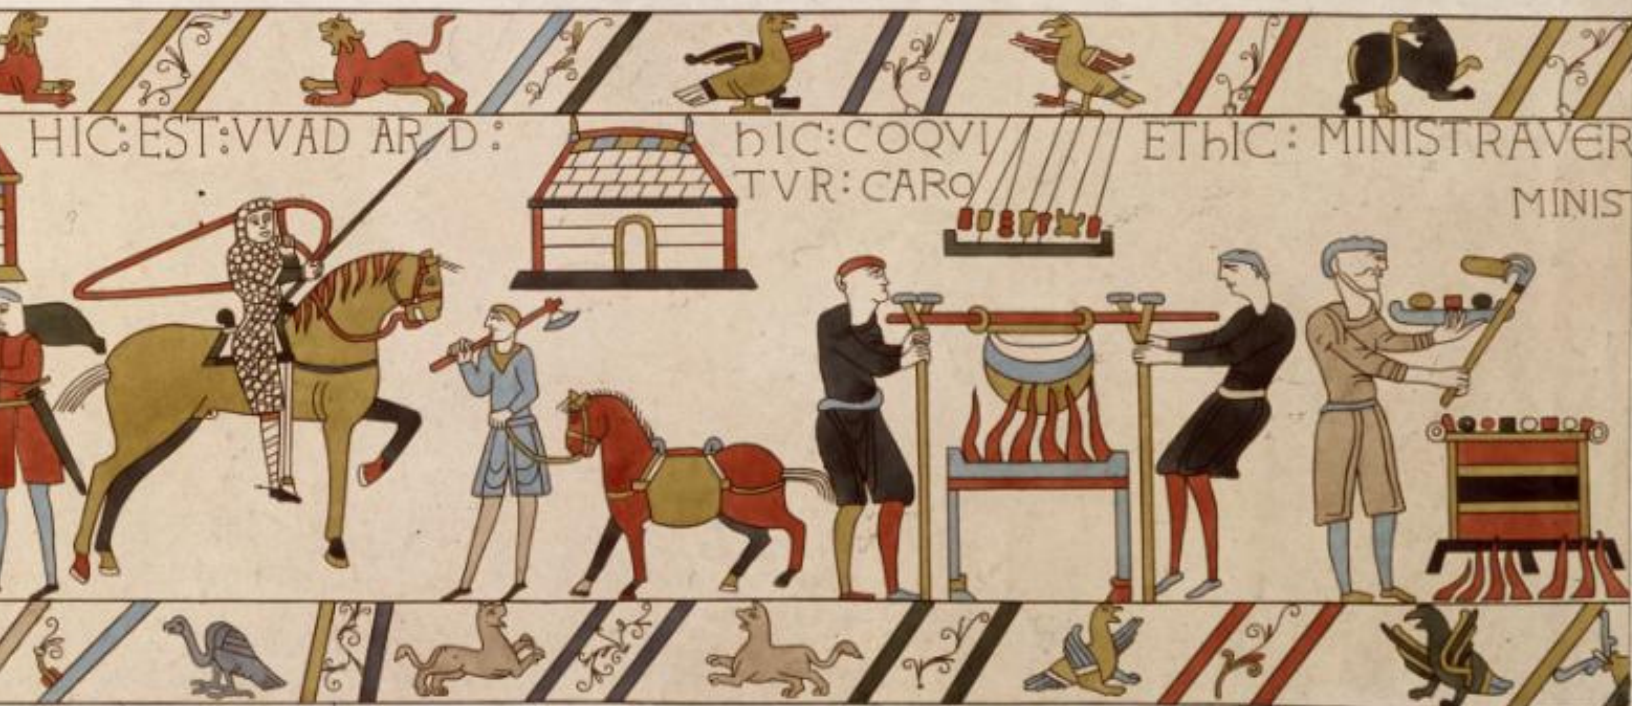 HIC:EST:VVAD ARD:
hIC:COQVI
TVR:CARO
EThIC: MINISTRAVER
MINIS